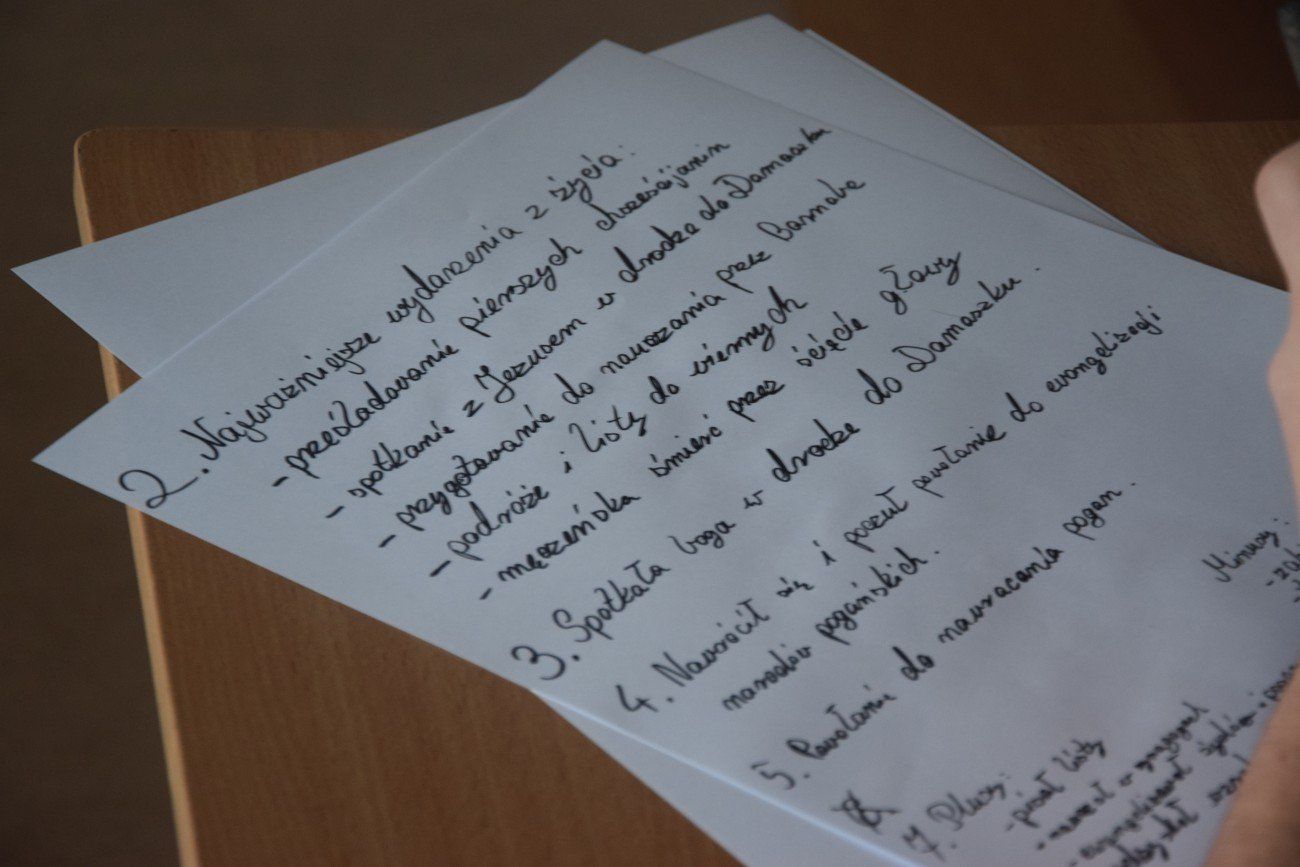 2. Najważniejsze wydarzenia z życia:
- prześladowanie pierszych chrześcijanin
- spotkanie z Jezusem w drodze do Damaszku
- przygotowanie do nauczania przez Barnabe
- podróże i listy do wiernych
- męczeńska śmierć przez ścięcie głowy
3. Spotkała boga w drodze do Damaszku.
4. Nawrócił się i poczuł powołanie do ewangelizacji
narodów pogańskich.
5. Powołanie do nawracania pogan.
7. Plusy:
- pisał listy
Minusy: